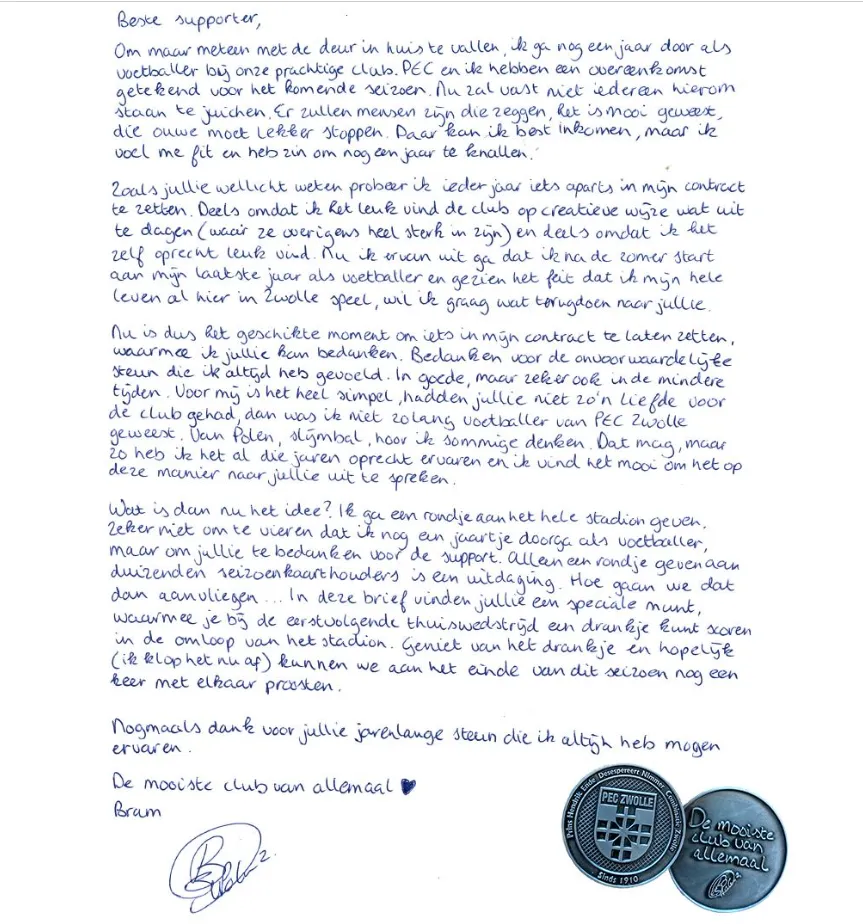 Beste supporter,
Om maar meteen met de deur in huis te vallen, ik ga nog een jaar door als
voetballer bij onze prachtige club. PEC en ik hebben een overeenkomst
getekend voor het komende seizoen. Nu zal vast niet iedereen hierom
staan te juichen. Er zullen mensen zijn die zeggen, het is mooi geweest,
die ouwe moet lekker stoppen. Daar kan ik best inkomen, maar ik
voel me fit en heb zin om nog een jaar te knallen.
Zoals jullie wellicht weten probeer ik ieder jaar iets aparts in mijn contract
te zetten. Deels omdat ik het leuk vind de club op creatieve wijze wat uit
te dagen (waar ze overigens heel sterk in zijn) en deels omdat ik het
zelf oprecht leuk vind. Nu ik ervan uit ga dat ik na de zomer start
aan mijn laatste jaar als voetballer en gezien het feit dat ik mijn hele
leven al hier in Zwolle speel, wil ik graag wat terugdoen naar jullie.
Nu is dus het geschikte moment om iets in mijn contract te laten zetten,
waarmee ik jullie kan bedanken. Bedanken voor de onvoorwaardelijke
steun die ik altijd heb gevoeld. In goede, maar zeker ook in de mindere
tijden. Voor mij is het heel simpel, hadden jullie niet zo'n liefde voor
de club gehad, dan was ik niet zolang voetballer van PEC Zwolle
geweest. Van Polen, slijmbal, hoor ik sommige denken. Dat mag, maar
zo heb ik het al die jaren oprecht ervaren en ik vind het mooi om het op
deze manier naar jullie uit te spreken.
Wat is dan nu het idee? Ik ga een rondje aan het hele stadion geven.
Zeker niet om te vieren dat ik nog een jaartje doorga als voetballer,
maar om jullie te bedanken voor de support. Alleen een rondje geven aan
duizenden seizoenkaarthouders is een uitdaging. Hoe gaan we dat
dan aanvliegen... In deze brief vinden jullie een speciale munt,
waarmee je bij de eerstvolgende thuiswedstrijd een drankje kunt scoren
in de omloop van het stadion. Geniet van het drankje en hopelijk
(ik klop het nu af) kunnen we aan het einde van dit seizoen nog een
keer met elkaar proosten.
Nogmaals dank voor jullie jarenlange steun die ik altijh heb mogen
ervaren.
De mooiste club van allemaal ♥
Bram
Prins Hendrik Ende Desespereert Nimmer Combinatie Zwolle
PEC ZWOLLE
Sinds 1910
De mooiste
club van
allemaal